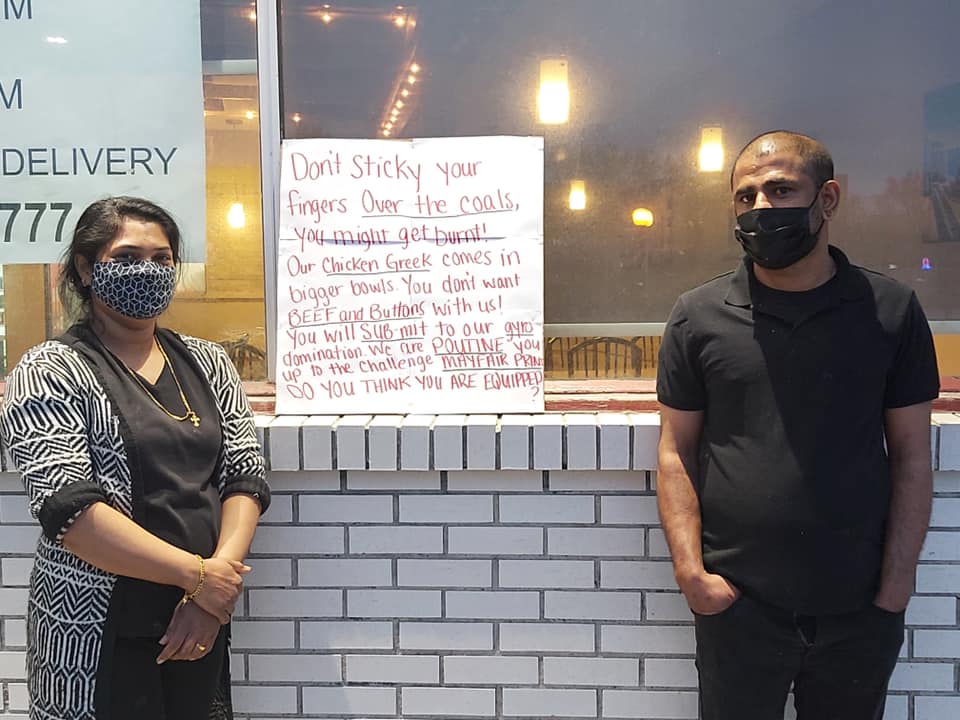 M
M
DELIVERY
777
Don't Sticky your
fingers Over the coals,
you might get burnt!
Our Chicken Greek comes in
bigger bowls. You don't want
BEEF and Buttons with us!
You will SUB-mit to our gyro
domination. We are POUTINE you
up to the challenge MAYFAIR PRINT
SO YOU THINK YOU ARE EQUIPPED
?